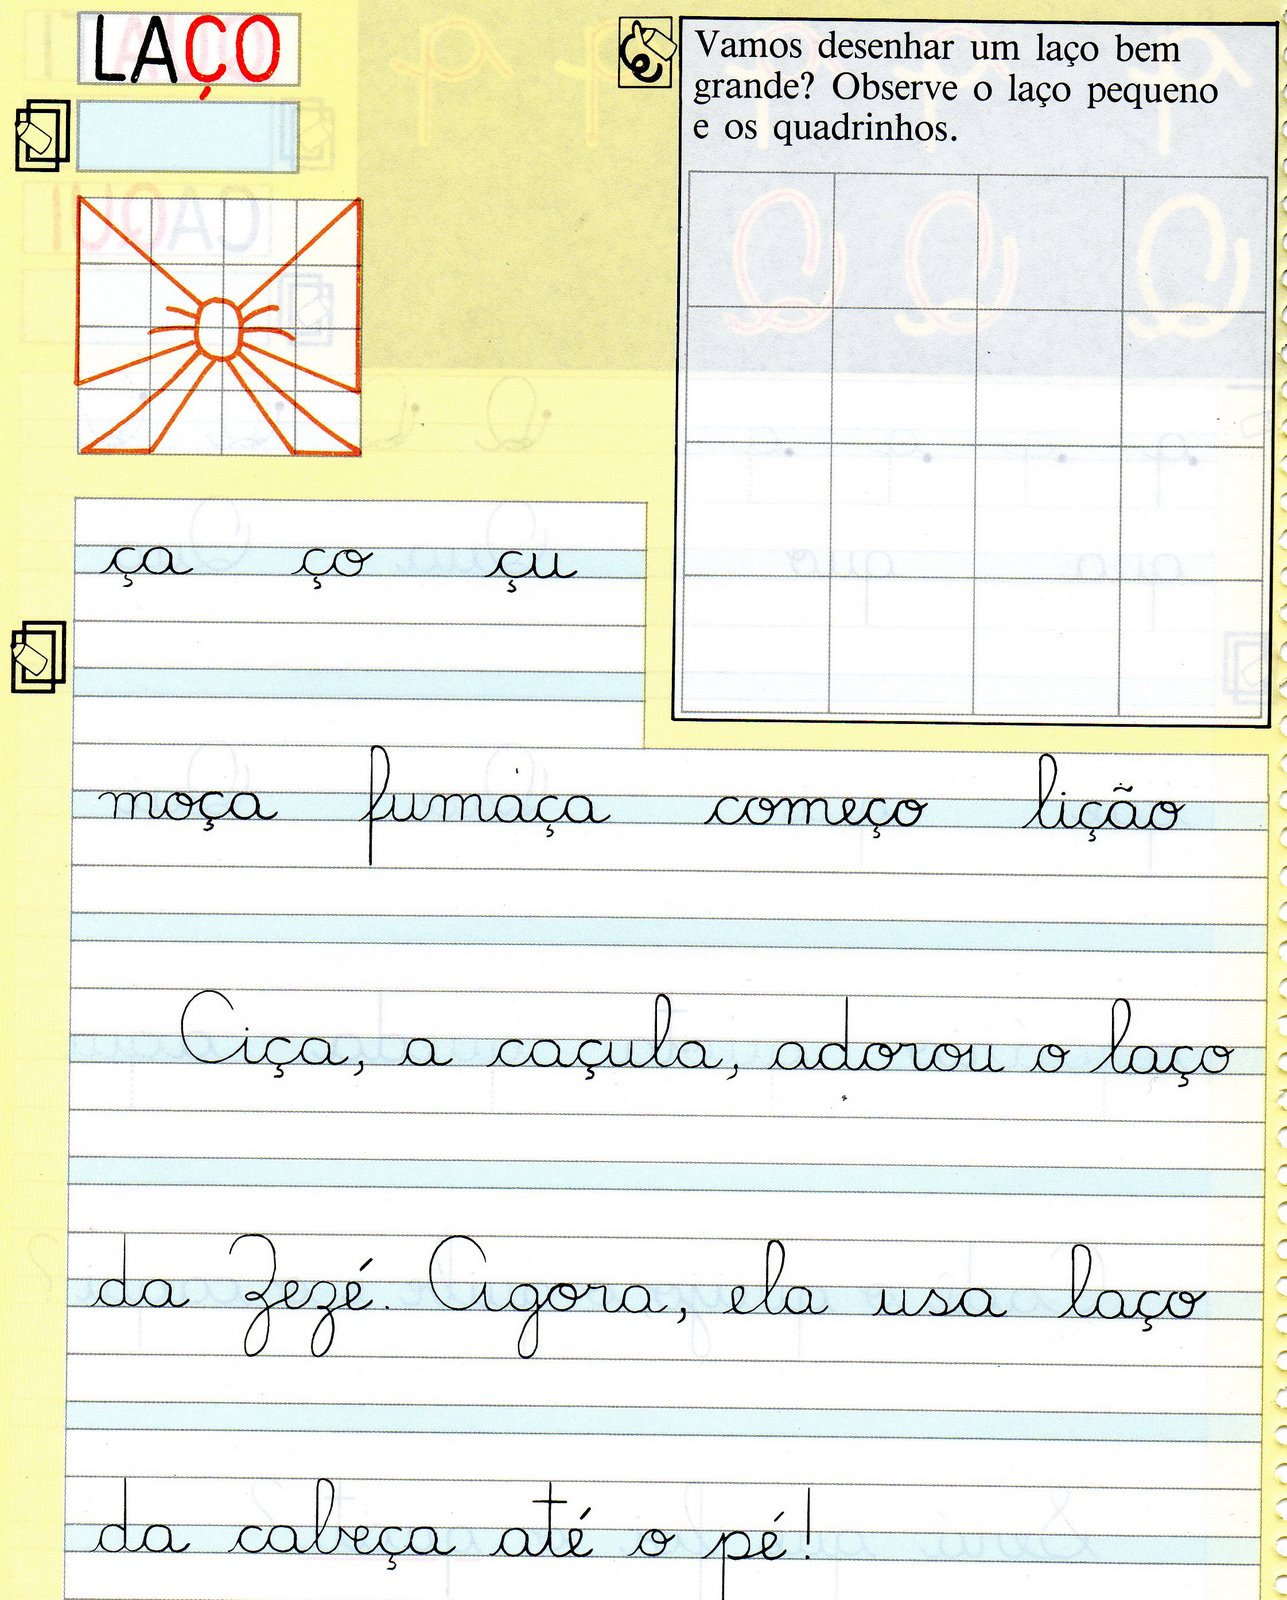 LAÇO
Vamos desenhar um laço bem
grande? Observe o laço pequeno
e os quadrinhos.
ça ço çu
moça fumaça começo lição
Ciça, a caçula, adorou o laço
da Zezé. Agora, ela usa laço
da cabeça até o pé!